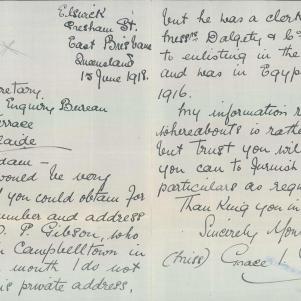 Elswick
Gresham St.
East Brisbane
Queensland
15 June 1918.
cretary
Enquiry Bureau
errace
laide
dam —
would be very
if you could obtain for
number and address
P. Gibson, who
n Campbelltown in
month I do not
is private address,
but he was a clerk
Messrs Dalgety & Co
to enlisting in the
and was in Egyp
1916.
My information r
whereabouts is rathe
but trust you wil
you can to furnish
particulars as requ
Thanking you in
Sincerely You
(Miss) Grace L.